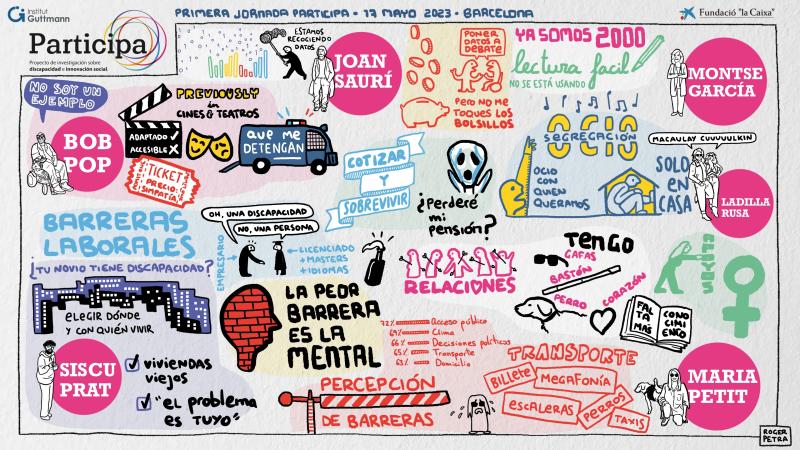 Institut
Guttmann
PRIMERA JORNADA PARTICIPA • 17 MAYO 2023 • BARCELONA
Fundació "la Caixa"
Participa
Proyecto de investigación sobre
discapacidad e innovación social.
ESTAMOS
RECOGIENDO
DATOS
JOAN
SAURÍ
PONER
DATOS A
DEBATE
PERO NO ME
TOQUES LOS
BOLSILLOS
YA SOMOS 2000
lectura facil
NO SE ESTÁ USANDO
MONTSE
GARCÍA
NO SOY UN
EJEMPLO
BOB
POP
PREVIOUSLY
in
CINES & TEATROS
ADAPTADO ✓
ACCESIBLE X
QUE ME
DETENGAN
TICKET
PRECIO:
SIMPATÍA
COTIZAR
Y
SOBREVIVIR
¿Perderé
mi
pensión?
OCIO
SEGREGACIÓN
OCIO
CON
QUIEN
QUERAMOS
SOLO
EN
CASA
MACAULAY CUUUUULKIN
LADILLA
RUSA
BARRERAS
LABORALES
OH, UNA DISCAPACIDAD
NO, UNA PERSONA
EMPRESARIO
LICENCIADO
+ MASTERS
+ IDIOMAS
RELACIONES
TENGO
GAFAS
BASTÓN
PERRO
CORAZÓN
FAL
TA
MÁS
CONO
CIMI
ENTO
¿TU NOVIO TIENE DISCAPACIDAD?
ELEGIR DÓNDE
Y CON QUIÉN VIVIR
LA PEOR
BARRERA
ES LA
MENTAL
72% Acceso público
69% Clima
66% Decisiones políticas
65% Transporte
63% Domicilio
SISCU
PRAT
viviendas
viejos
"el problema
es TUYO"
PERCEPCIÓN
DE BARRERAS
TRANSPORTE
BILLETE
MEGAFONÍA
ESCALERAS
PERROS
TAXIS
MARIA
PETIT
ROGER
PETRA